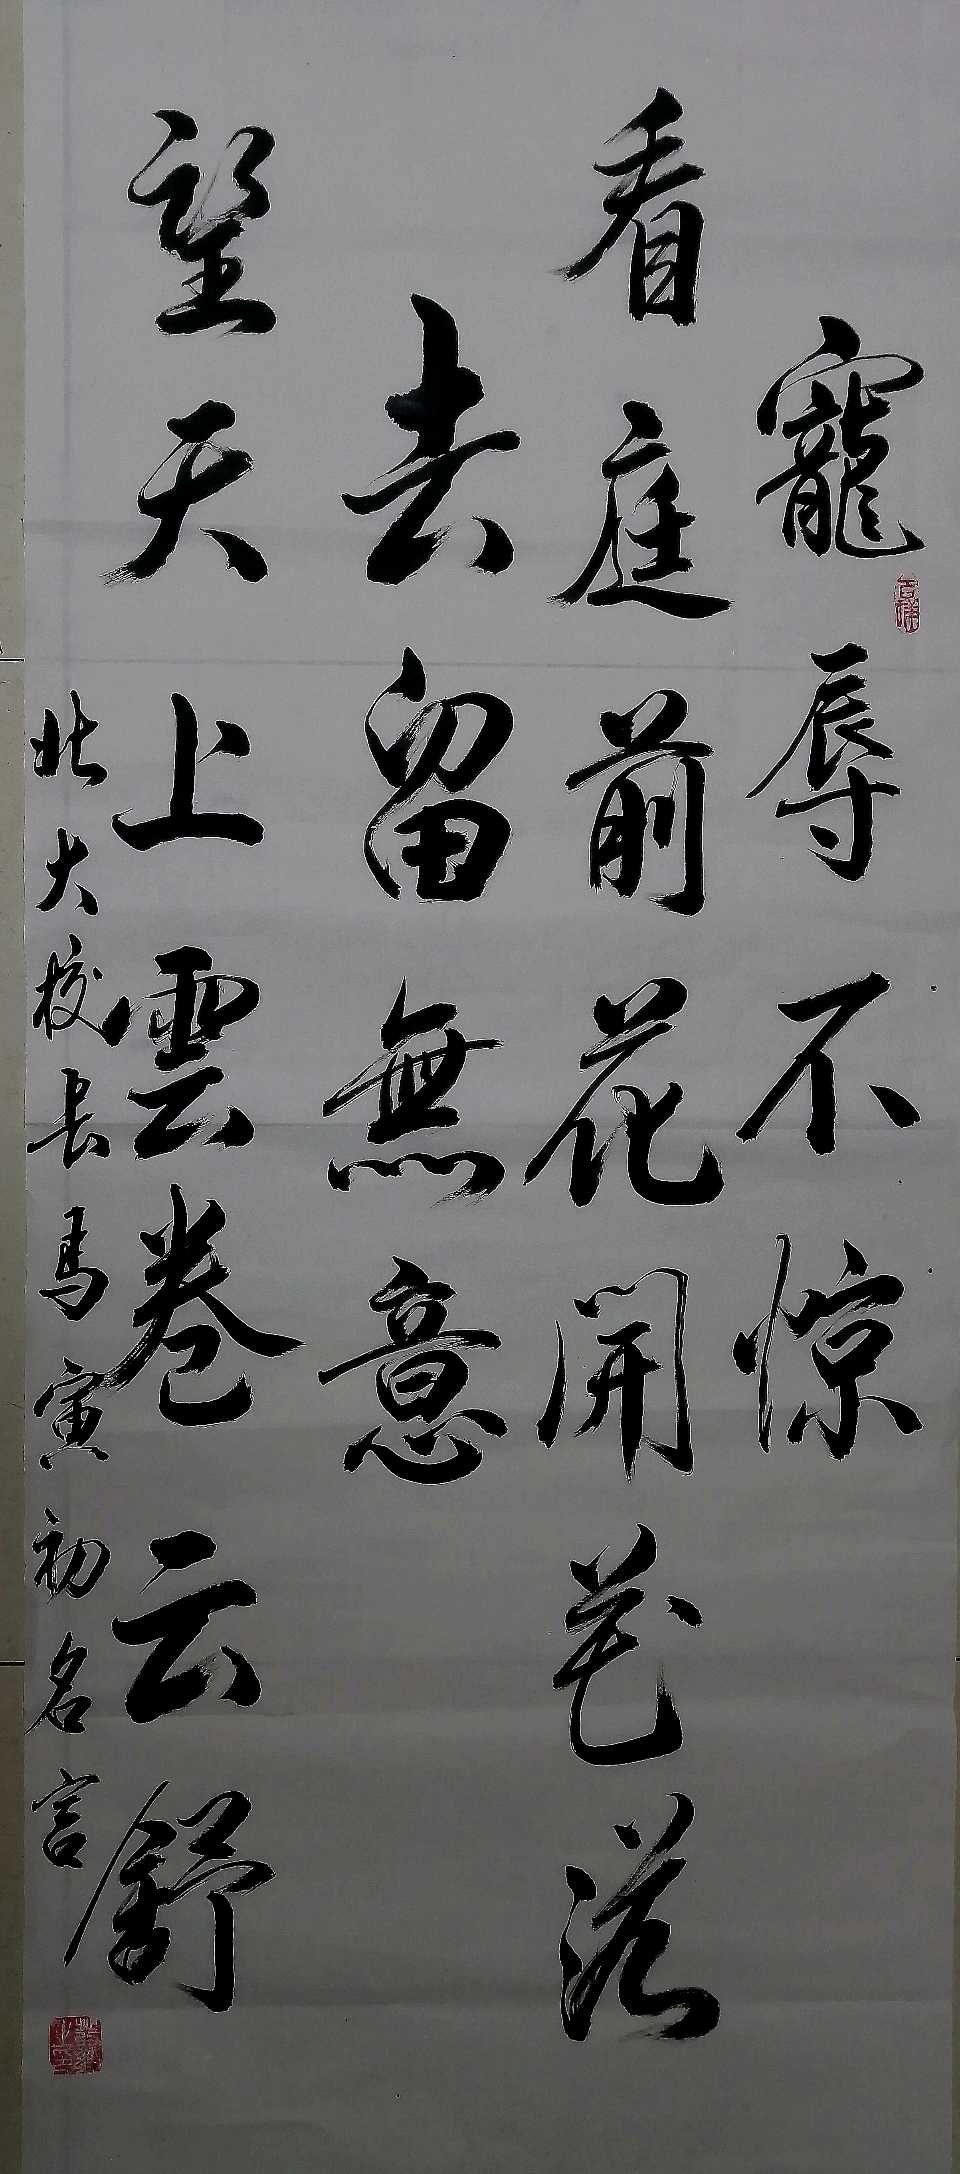 寵辱不惊
看庭前花開花落
去留無意
望天上雲卷云舒
北大校长馬寅初名言
吉祥